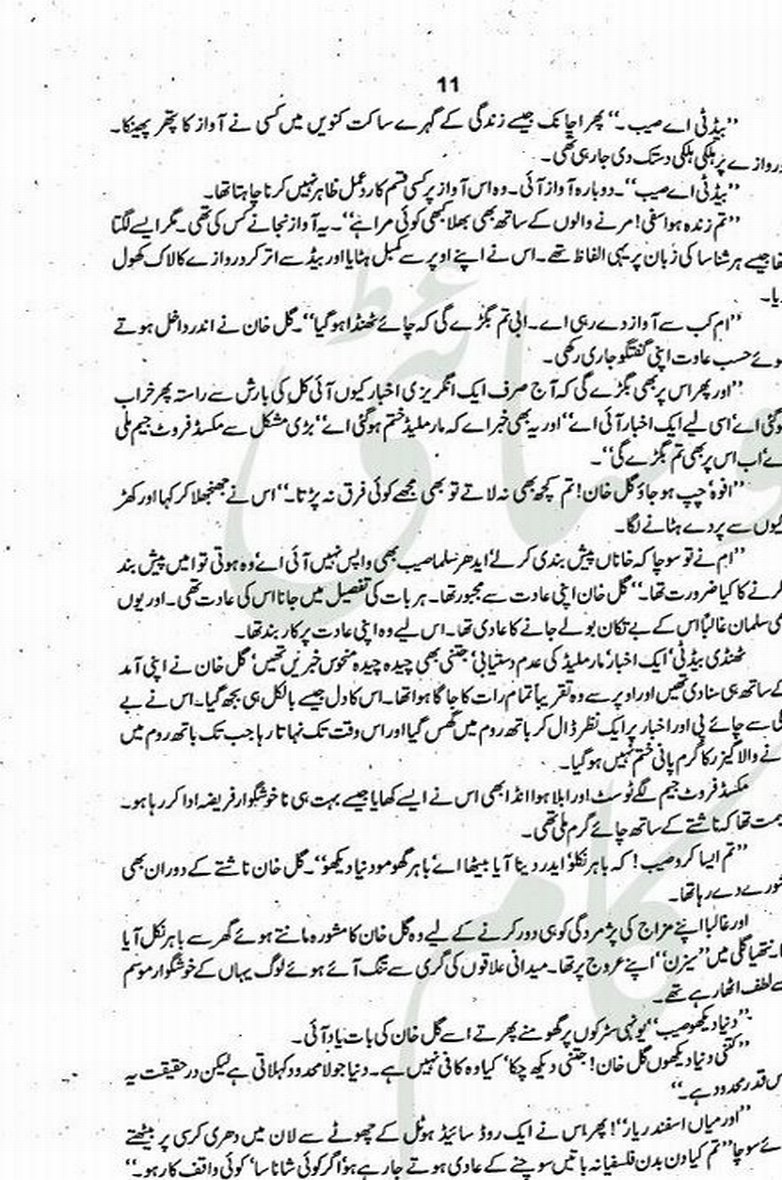 11
”بیڈٹی اے صیب۔“ پھر اچانک جیسے زندگی کے گہرے ساکت کنویں میں کسی نے آواز کا پتھر پھینکا۔
دروازے پر ہلکی ہلکی دستک دی جارہی تھی۔
”بیڈٹی اے صیب“۔ دوبارہ آواز آئی۔ وہ اس آواز پر کسی قسم کا ردعمل ظاہر نہیں کرنا چاہتا تھا۔
”تم زندہ ہو اسفی! مرنے والوں کے ساتھ بھی بھلا کبھی کوئی مرا ہے“۔ یہ آواز نجانے کس کی تھی۔ مگر ایسے لگتا
تھا جیسے ہر شناسا کی زبان پر یہی الفاظ تھے۔ اس نے اپنے اوپر سے کمبل ہٹایا اور بیڈ سے اتر کر دروازے کا لاک کھول
دیا۔
”ام کب سے آواز دے رہی اے۔ ابی تم بگڑے گی کہ چائے ٹھنڈا ہو گیا“۔ گل خان نے اندر داخل ہوتے
ہوئے حسب عادت اپنی گفتگو جاری رکھی۔
”اور پھر اس پر بھی بگڑے گی کہ آج صرف ایک انگریزی اخبار کیوں آئی کل کی بارش سے راستہ پھر خراب
ہوگئی اے‘ اسی لیے ایک اخبار آئی اے“ اور یہ بھی خبر اے کہ مارملیڈ ختم ہوگئی اے“ بڑی مشکل سے مکسڈ فروٹ جیم ملی
اے‘ اب اس پر بھی تم بگڑے گی“۔
”افوہ‘ چپ ہو جاؤ گل خان! تم کچھ بھی نہ لاتے تو بھی مجھے کوئی فرق نہ پڑتا۔“ اس نے جھنجھلا کر کہا اور کھڑ
کیوں سے پردے ہٹانے لگا۔
”ام نے تو سوچا کہ خاناں پیش بندی کر لے‘ ایدھر سلما صیب بھی واپس نہیں آئی اے‘ وہ ہوتی تو امیں پیش بند
کرنے کا کیا ضرورت تھا۔“ گل خان اپنی عادت سے مجبور تھا۔ ہر بات کی تفصیل میں جانا اس کی عادت تھی۔ اور یوں
بھی سلمان غالباً اس کے بے تکان بولے جانے کا عادی تھا۔ اس لیے وہ اپنی عادت پر کاربند تھا۔
ٹھنڈی بیڈٹی‘ ایک اخبار‘ مارملیڈ کی عدم دستیابی‘ جتنی بھی چیدہ چیدہ منحوس خبریں تھیں‘ گل خان نے اپنی آمد
کے ساتھ ہی سنا دی تھیں اور اوپر سے وہ تقریباً تمام رات کا جاگا ہوا تھا۔ اس کا دل جیسے بالکل ہی بجھ گیا۔ اس نے بے
دلی سے چائے پی اور اخبار پر ایک نظر ڈال کر باتھ روم میں گھس گیا اور اس وقت تک نہاتا رہا جب تک باتھ روم میں
آنے والا گیزر کا گرم پانی ختم نہیں ہوگیا۔
مکسڈ فروٹ جیم لگے ٹوسٹ اور ابلا ہوا انڈا بھی اس نے ایسے کھایا جیسے بہت ہی ناخوشگوار فریضہ ادا کر رہا ہو۔
غنیمت تھا کہ ناشتے کے ساتھ چائے گرم ملی تھی۔
”تم ایسا کرو صیب! کہ باہر نکلو‘ ایدر دینا آیا بیٹھا اے‘ باہر گھومو دنیا دیکھو“۔ گل خان ناشتے کے دوران بھی
مشورے دے رہا تھا۔
اور غالباً اپنے مزاج کی پژمردگی کو ہی دور کرنے کے لیے وہ گل خان کا مشورہ مانتے ہوئے گھر سے باہر نکل آیا
تھا۔ نتھیا گلی میں ”سیزن“ اپنے عروج پر تھا۔ میدانی علاقوں کی گرمی سے تنگ آئے ہوئے لوگ یہاں کے خوشگوار موسم
سے لطف اٹھا رہے تھے۔
”دنیا دیکھو صیب“ یونہی سڑکوں پر گھومنے پھرتے اسے گل خان کی بات یاد آئی۔
”کتنی دنیا دیکھوں گل خان! جتنی دیکھ چکا‘ کیا وہ کافی نہیں ہے۔ دنیا جو لامحدود کہلاتی ہے لیکن درحقیقت یہ
کس قدر محدود ہے۔“
”اور میاں اسفند ریار“! پھر اس نے ایک روڈ سائیڈ ہوٹل کے چھوٹے سے لان میں دھری کرسی پر بیٹھتے
ہوئے سوچا ”تم کیا دن بدن فلسفیانہ باتیں سوچنے کے عادی ہوتے جا رہے ہو‘ اگر کوئی شناسا‘ کوئی واقف کار ہو۔“